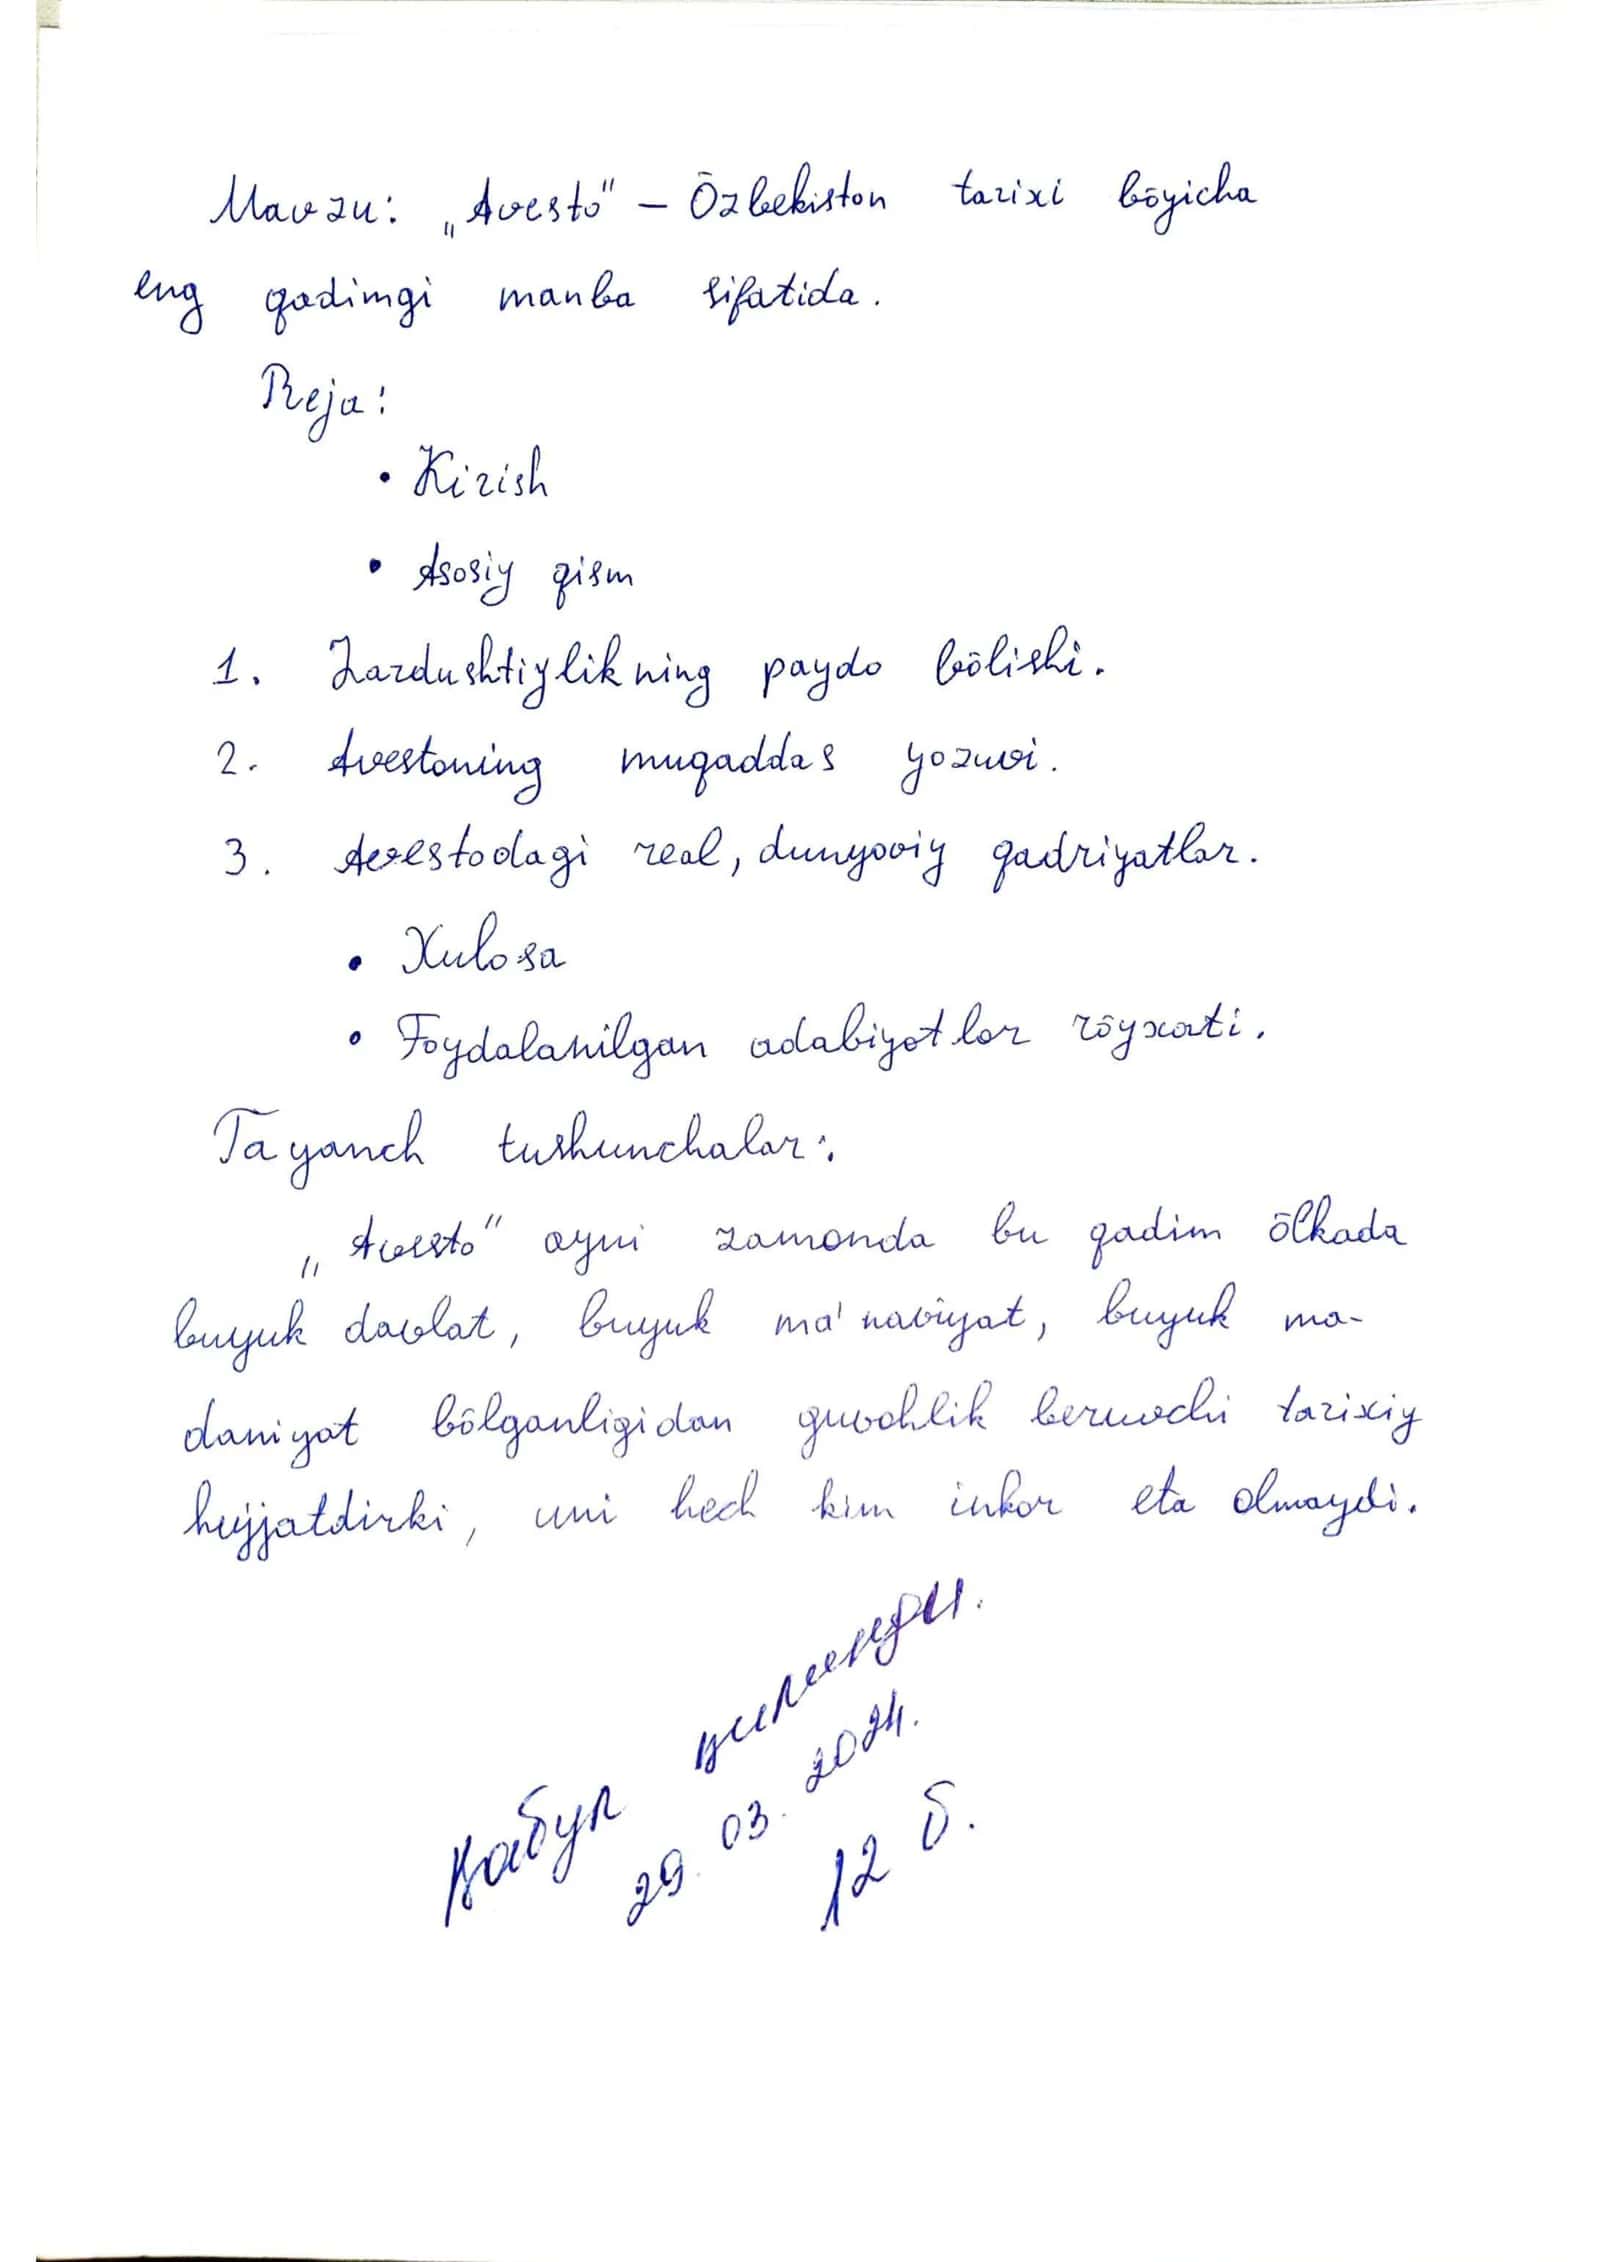 Mavzu: „Avesto" – Ōzbekiston tarixi bōyicha
eng qadimgi manba sifatida.
Reja:
• Kirish
• Asosiy qism
1. Zardushtiylikning paydo bōlishi.
2. Avestoning muqaddas yozuvi.
3. Avestodagi real, dunyoviy qadriyatlar.
• Xulosa
• Foydalanilgan adabiyotlar rōyxati.
Tayanch tushunchalar:
„Avesto" ayni zamonda bu qadim ōlkada
buyuk davlat, buyuk ma'naviyat, buyuk ma-
daniyat bōlganligidan guvohlik beruvchi tarixiy
hujjatdirki, uni hech kim inkor eta olmaydi.
Қабул қилинди.
29.03.2024.
12 б.